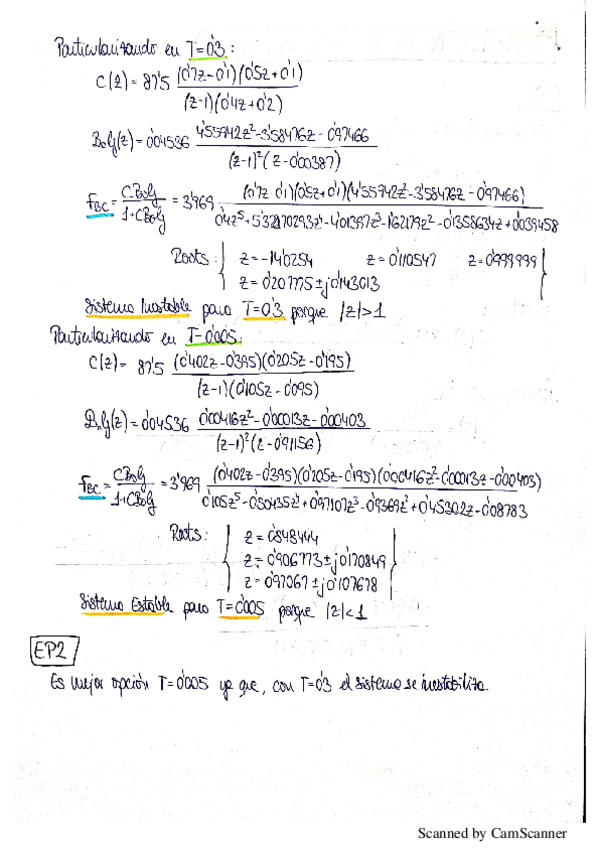 Particularizando en T=0'3:
C(z) = 87'5 (0'7z-0'1)(0'5z+0'1) / (z-1)(0'4z+0'2)
B₀G(z) = 0'04536 4'55742z²-3'58476z-0'97466 / (z-1)²(z-0'00387)
F_BC = CB₀G / 1+CB₀G = 3'969 (0'7z-0'1)(0'5z+0'1)(4'55742z²-3'58476z-0'97466) / 0'4z⁵+5'32170293z⁴-4'01397z³-1'62179z²-0'1358634z+0'039458
Roots: z=-14'0254 z=0'110547 z=0'999999
z=0'207775±j0'143013
Sistema Inestable para T=0'3 porque |z|>1
Particularizando en T=0'005:
C(z) = 87'5 (0'402z-0'395)(0'205z-0'195) / (z-1)(0'105z-0'095)
B₀G(z) = 0'04536 0'00416z²-0'00013z-0'00403 / (z-1)²(z-0'91156)
F_BC = CB₀G / 1+CB₀G = 3'969 (0'402z-0'395)(0'205z-0'195)(0'00416z²-0'00013z-0'00403) / 0'105z⁵-0'50435z⁴+0'97107z³-0'9369z²+0'45302z-0'08783
Roots: z=0'848444
z=0'906773±j0'170849
z=0'97067±j0'107678
Sistema Estable para T=0'005 porque |z|<1
EP2
Es mejor opción T=0'005 ya que, con T=0'3 el sistema se inestabiliza.
Scanned by CamScanner